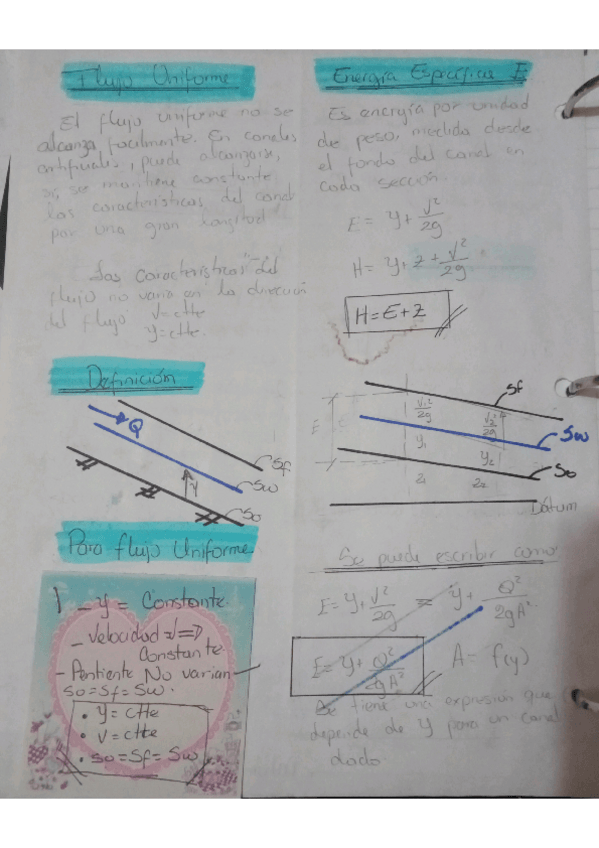 Flujo Uniforme
El flujo uniforme no se
alcanza facilmente. En canales
artificiales, puede alcanzarse,
si, se mantiene constante
las caracteristicas del canal
por una gran longitud
Las caracteristicas del
flujo no varia en la dirección
del flujo V=ctte
y=ctte.
Definición
Q
Sf
Sw
y
So
Para flujo Uniforme
1 - y = Constante.
- Velocidad =V=>
Constante
- Pentiente No varian
So=Sf=Sw.
• y=ctte
• v=ctte
• So=Sf=Sw
Energía Específica E
Es energía por unidad
de peso, medida desde
el fondo del canal en
cada sección.
E= y+ V²/2g
H= y+z+V²/2g
H=E+Z
Sf
E
V₁²/2g
V₂²/2g
Sw
y₁
y₂
So
z₁
z₂
Dátum
Se puede escribir como
E=y+V²/2g = y+ Q²/2gA²
E=y+Q²/2gA² A= f(y)
Se tiene una expresión que
depende de y para un canal
dado.